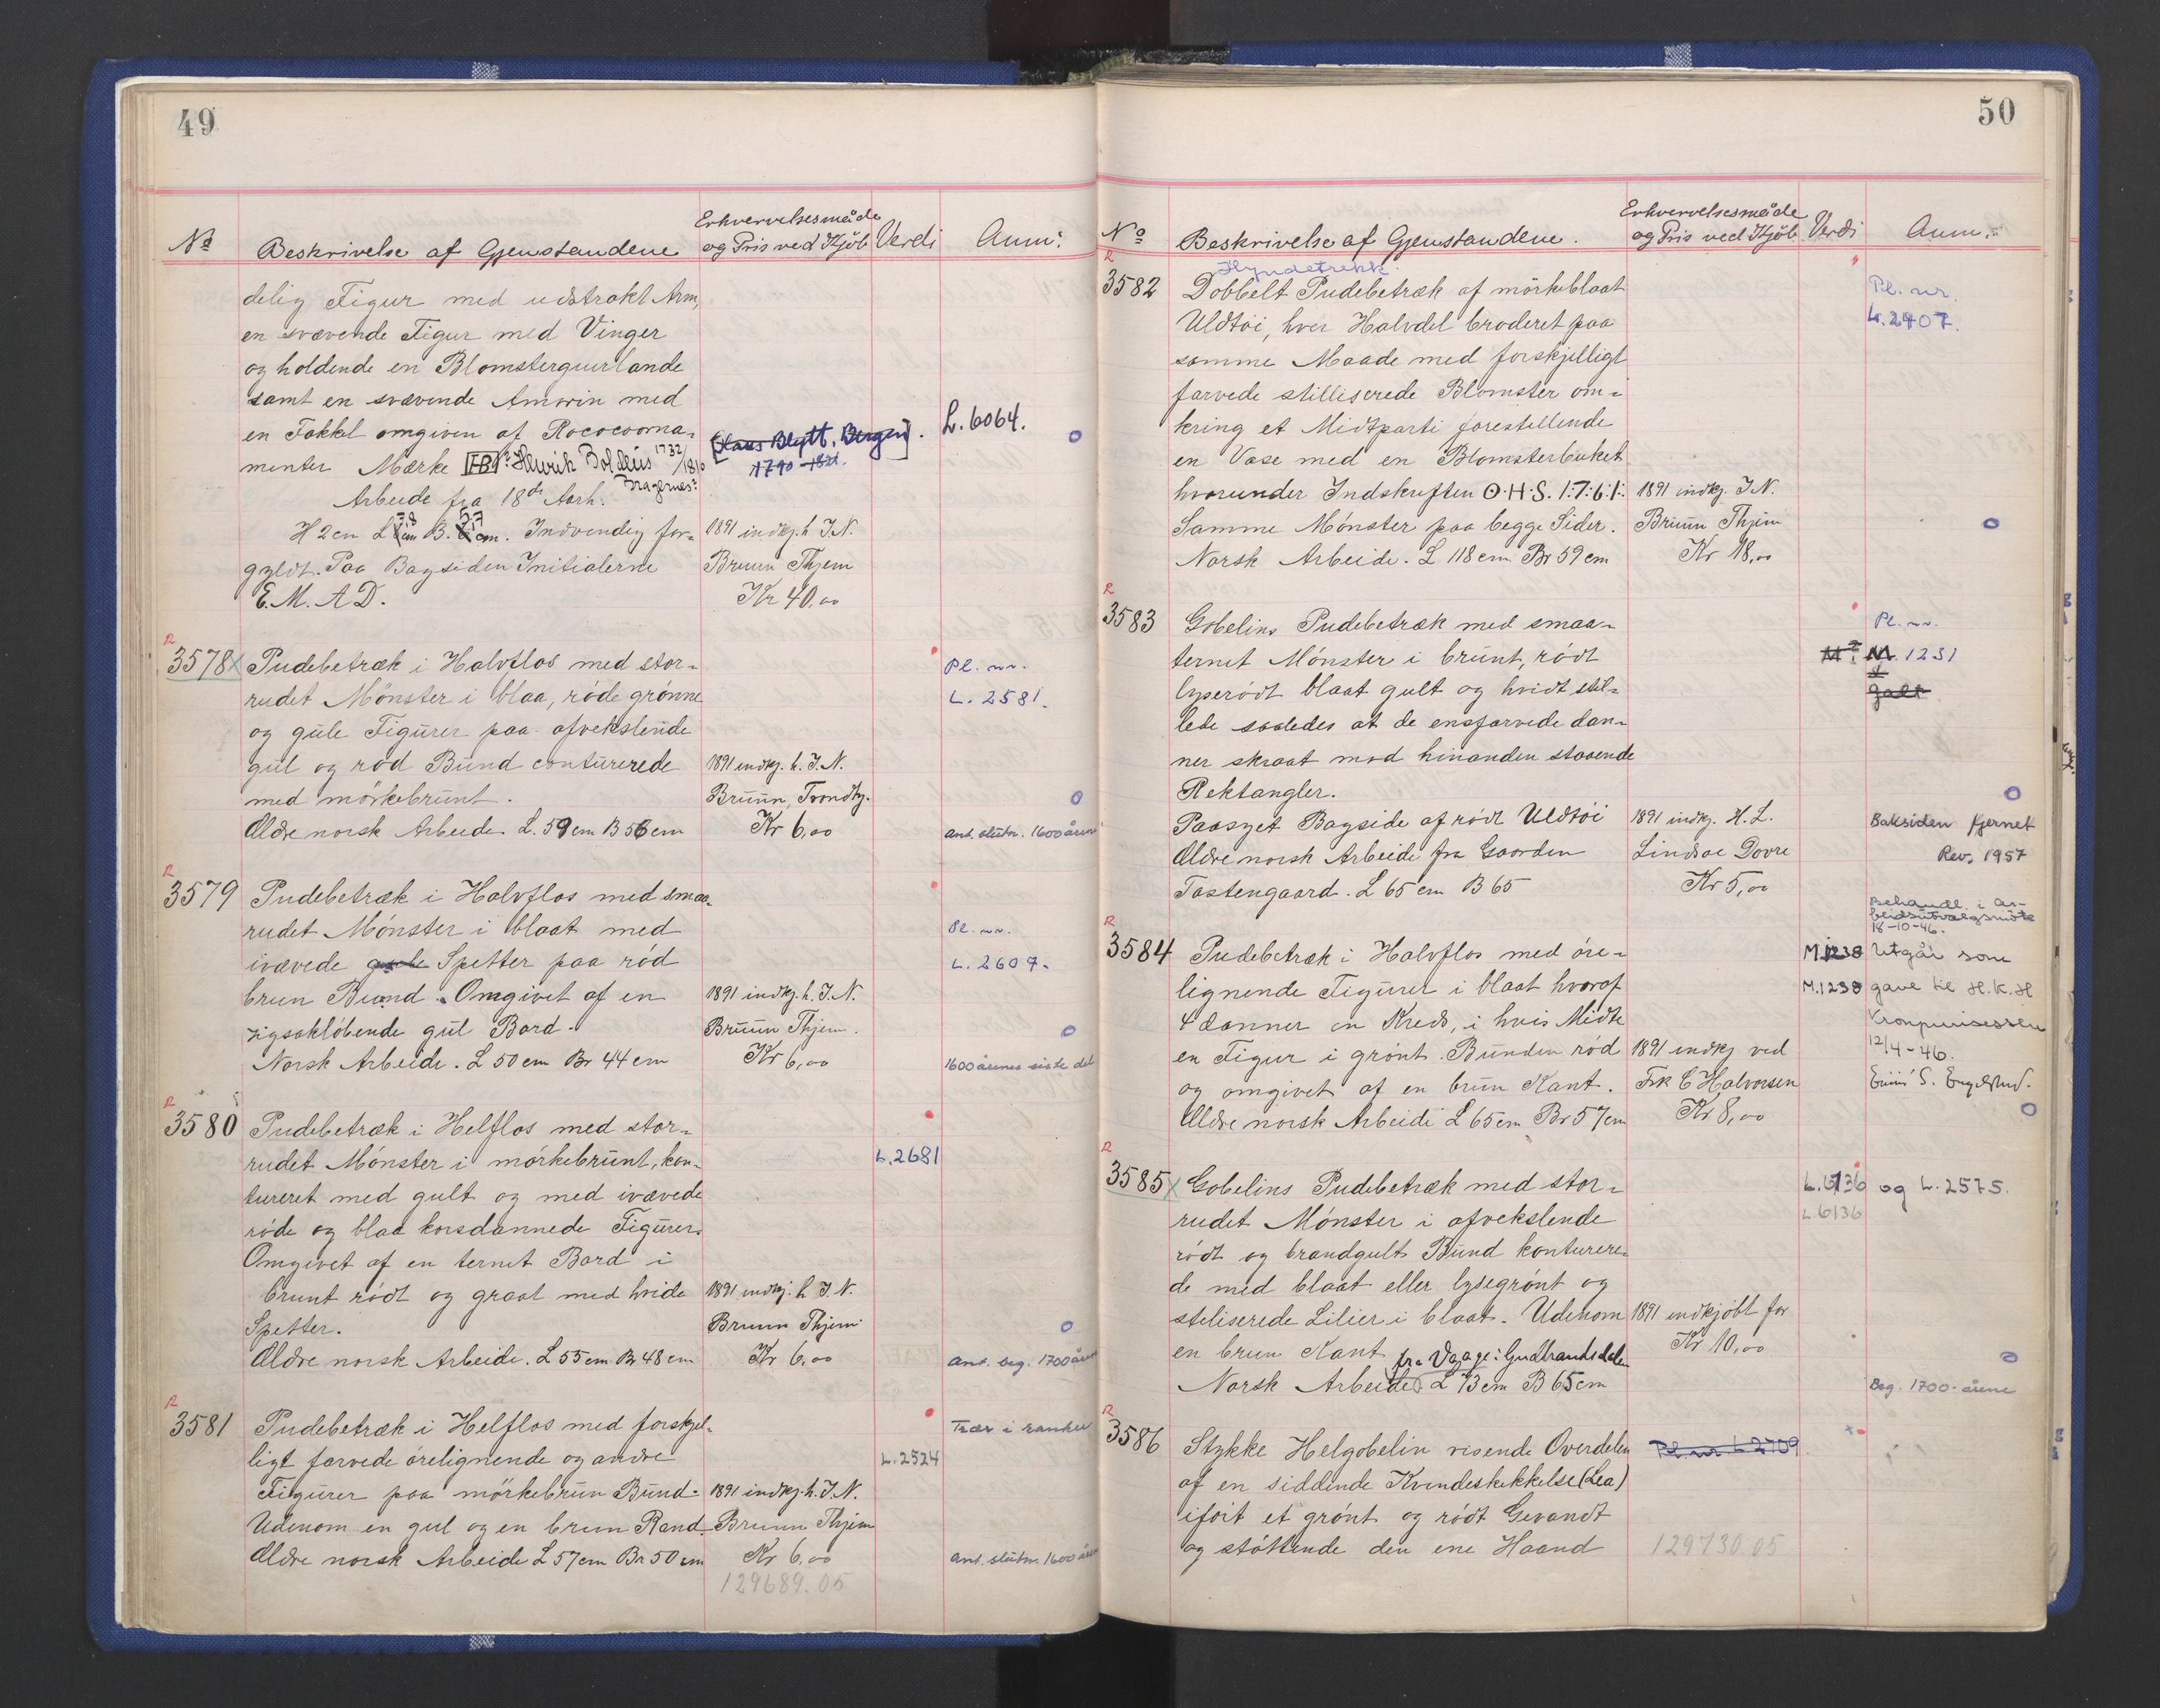 49
Nº Beskrivelse af Gjenstandene Erhvervelsesmåde og Pris ved Kjöb Verdi Anm:
delig Figur med udstrakt Arm,
en svævende Figur med Vinger
og holdende en Blomsterguirlande
samt en svævende Amorin med
en Fakkel omgiven af Rococoorna-
menter Mærke HB? : Henrik Boldeus 1732/1810
Bragernes?
[Claus Blytt, Bergen].
1790-1821.
L. 6064.
Arbeide fra 18de Aarh.
H 2 cm L 7,8 cm B. 5,7 cm. Indvendig for- 1891 indkj. h I.N.
gyldt. Paa Bagsiden Initialerne Bruun Thjem
E. M. A D. Kr 40,00
R
3578 x Pudebetræk i Halvflos med stor- Pl. nr.
rudet Mönster i blaa, röde grönne L. 2581.
og gule Figurer paa afvekslende
gul og röd Bund conturerede 1891 indkj. h. I.N.
med mörkebrunt. Bruun, Trondhj.
Ældre norsk Arbeide L. 59 cm B 56 cm Kr 6,00 ant. slutn. 1600 årene
R
3579 Pudebetræk i Halvflos med smaa-
rudet Mönster i blaat med Pl. nr.
ivævede gule Spetter paa röd L. 2607.
brun Bund. Omgivet af en 1891 indkj. h. I.N.
zigsaklöbende gul Bord. Bruun Thjem.
Norsk Arbeide. L 50 cm Br 44 cm Kr 6,00 1600 årenes siste del
R
3580 Pudebetræk i Helflos med stor-
rudet Mönster i mörkebrunt, kon- L. 2681
tureret med gult og med ivævede
röde og blaa korsdannede Figurer.
Omgivet af en ternet Bord i
brunt rödt og graat med hvide 1891 indkj. h I.N.
Spetter. Bruun Thjem
Ældre norsk Arbeide. L 55 cm Br 48 cm Kr 6,00 ant. beg. 1700 årene
R
3581 Pudebetræk i Helflos med forskjel- Trær i ranker
ligt farvede örelignende og andre L. 2524
Figurer paa mörkebrun Bund. 1891 indkj. h. I.N.
Udenom en gul og en brun Rand. Bruun Thjem
Ældre norsk Arbeide L 57 cm Br 50 cm Kr 6,00 ant. slutn. 1600 årene
129689.05
50
Nº Beskrivelse af Gjenstandene. Erhvervelsesmåde og Pris ved Kjöb Verdi Anm.
R Hyndetrekk.
3582 Dobbelt Pudebetræk af mörkeblaat Pl. nr.
Uldtöi, hver Halvdel broderet paa L. 2407.
samme Maade med forskjelligt
farvede stilliserede Blomster om-
kring et Midtparti forestellende
en Vase med en Blomsterbuket
hvorunder Indskriften O·H·S. 1:7:6:1: 1891 indkj. I.N.
Samme Mönster paa begge Sider. Bruun Thjem
Norsk Arbeide. L 118 cm Br 59 cm Kr 18,00
R
3583 Gobelins Pudebetræk med smaa- Pl. nr.
ternet Mönster i brunt, rödt M? M. 1231
lyserödt blaat gult og hvidt stil- galt
lede saaledes at de ensfarvede dan-
ner skraat mod hinanden staaende
Rektangler.
Paasyet Bagside af rödt Uldtöi 1891 indkj. H.L. Baksiden fjernet
Ældre norsk Arbeide fra Gaarden Lindsöe Dovre Rev. 1957
Tostengaard. L 65 cm B 65 Kr 5,00
Behandl. i ar-
beidsutvalgsmöte
18-10-46.
R
3584 Pudebetræk i Halvflos med öre- M. 1238 Utgår som
lignende Figurer i blaat hvoraf M. 1238 gave til H.K.H
4 danner en Kreds, i hvis Midte Kronprinsessen
en Figur i grönt. Bunden röd 1891 indkj ved 12/4-46.
og omgivet af en brun Kant. Frk C Halvorsen Eiin S. Engelstad.
Ældre norsk Arbeide L 65 cm Br 57 cm Kr 8,00
R
3585 x Gobelins Pudebetræk med stor- L. 6136 og L. 2575.
rudet Mönster i afvekslende L. 6136
rödt og brandgult Bund konturere-
de med blaat eller lysegrönt og
steliserede Lilier i blaat. Udenom 1891 indkjöbt for
en brun Kant fra Vaage i Gudbrandsdalen Kr 10,00
Norsk Arbeide L 73 cm B 65 cm Beg. 1700-årene
R
3586 Stykke Helgobelin visende Overdelen Pl. nr L 2709.
af en siddende Kvindeskikkelse (Lea)
ifört et grönt og rödt Gevandt
og stöttende den ene Haand 129730.05